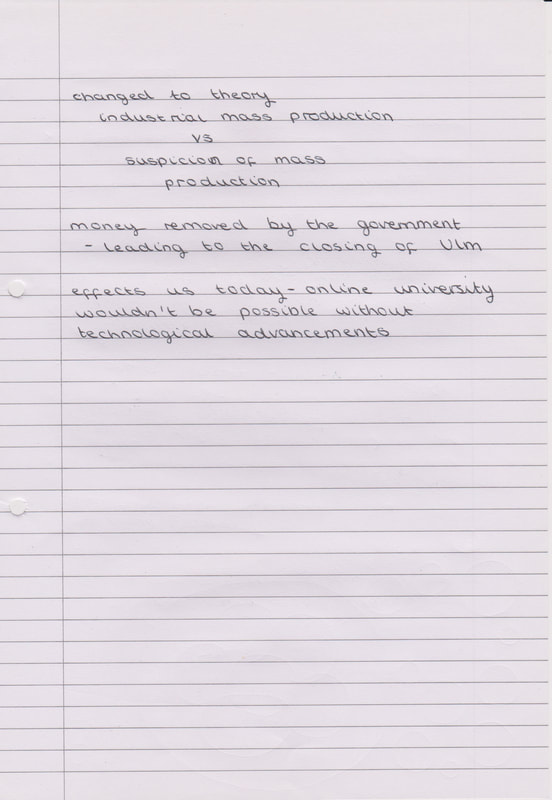 changed to theory
industrial mass production
vs
suspicion of mass
production
money removed by the government
- leading to the closing of Ulm
effects us today - online university
wouldn't be possible without
technological advancements